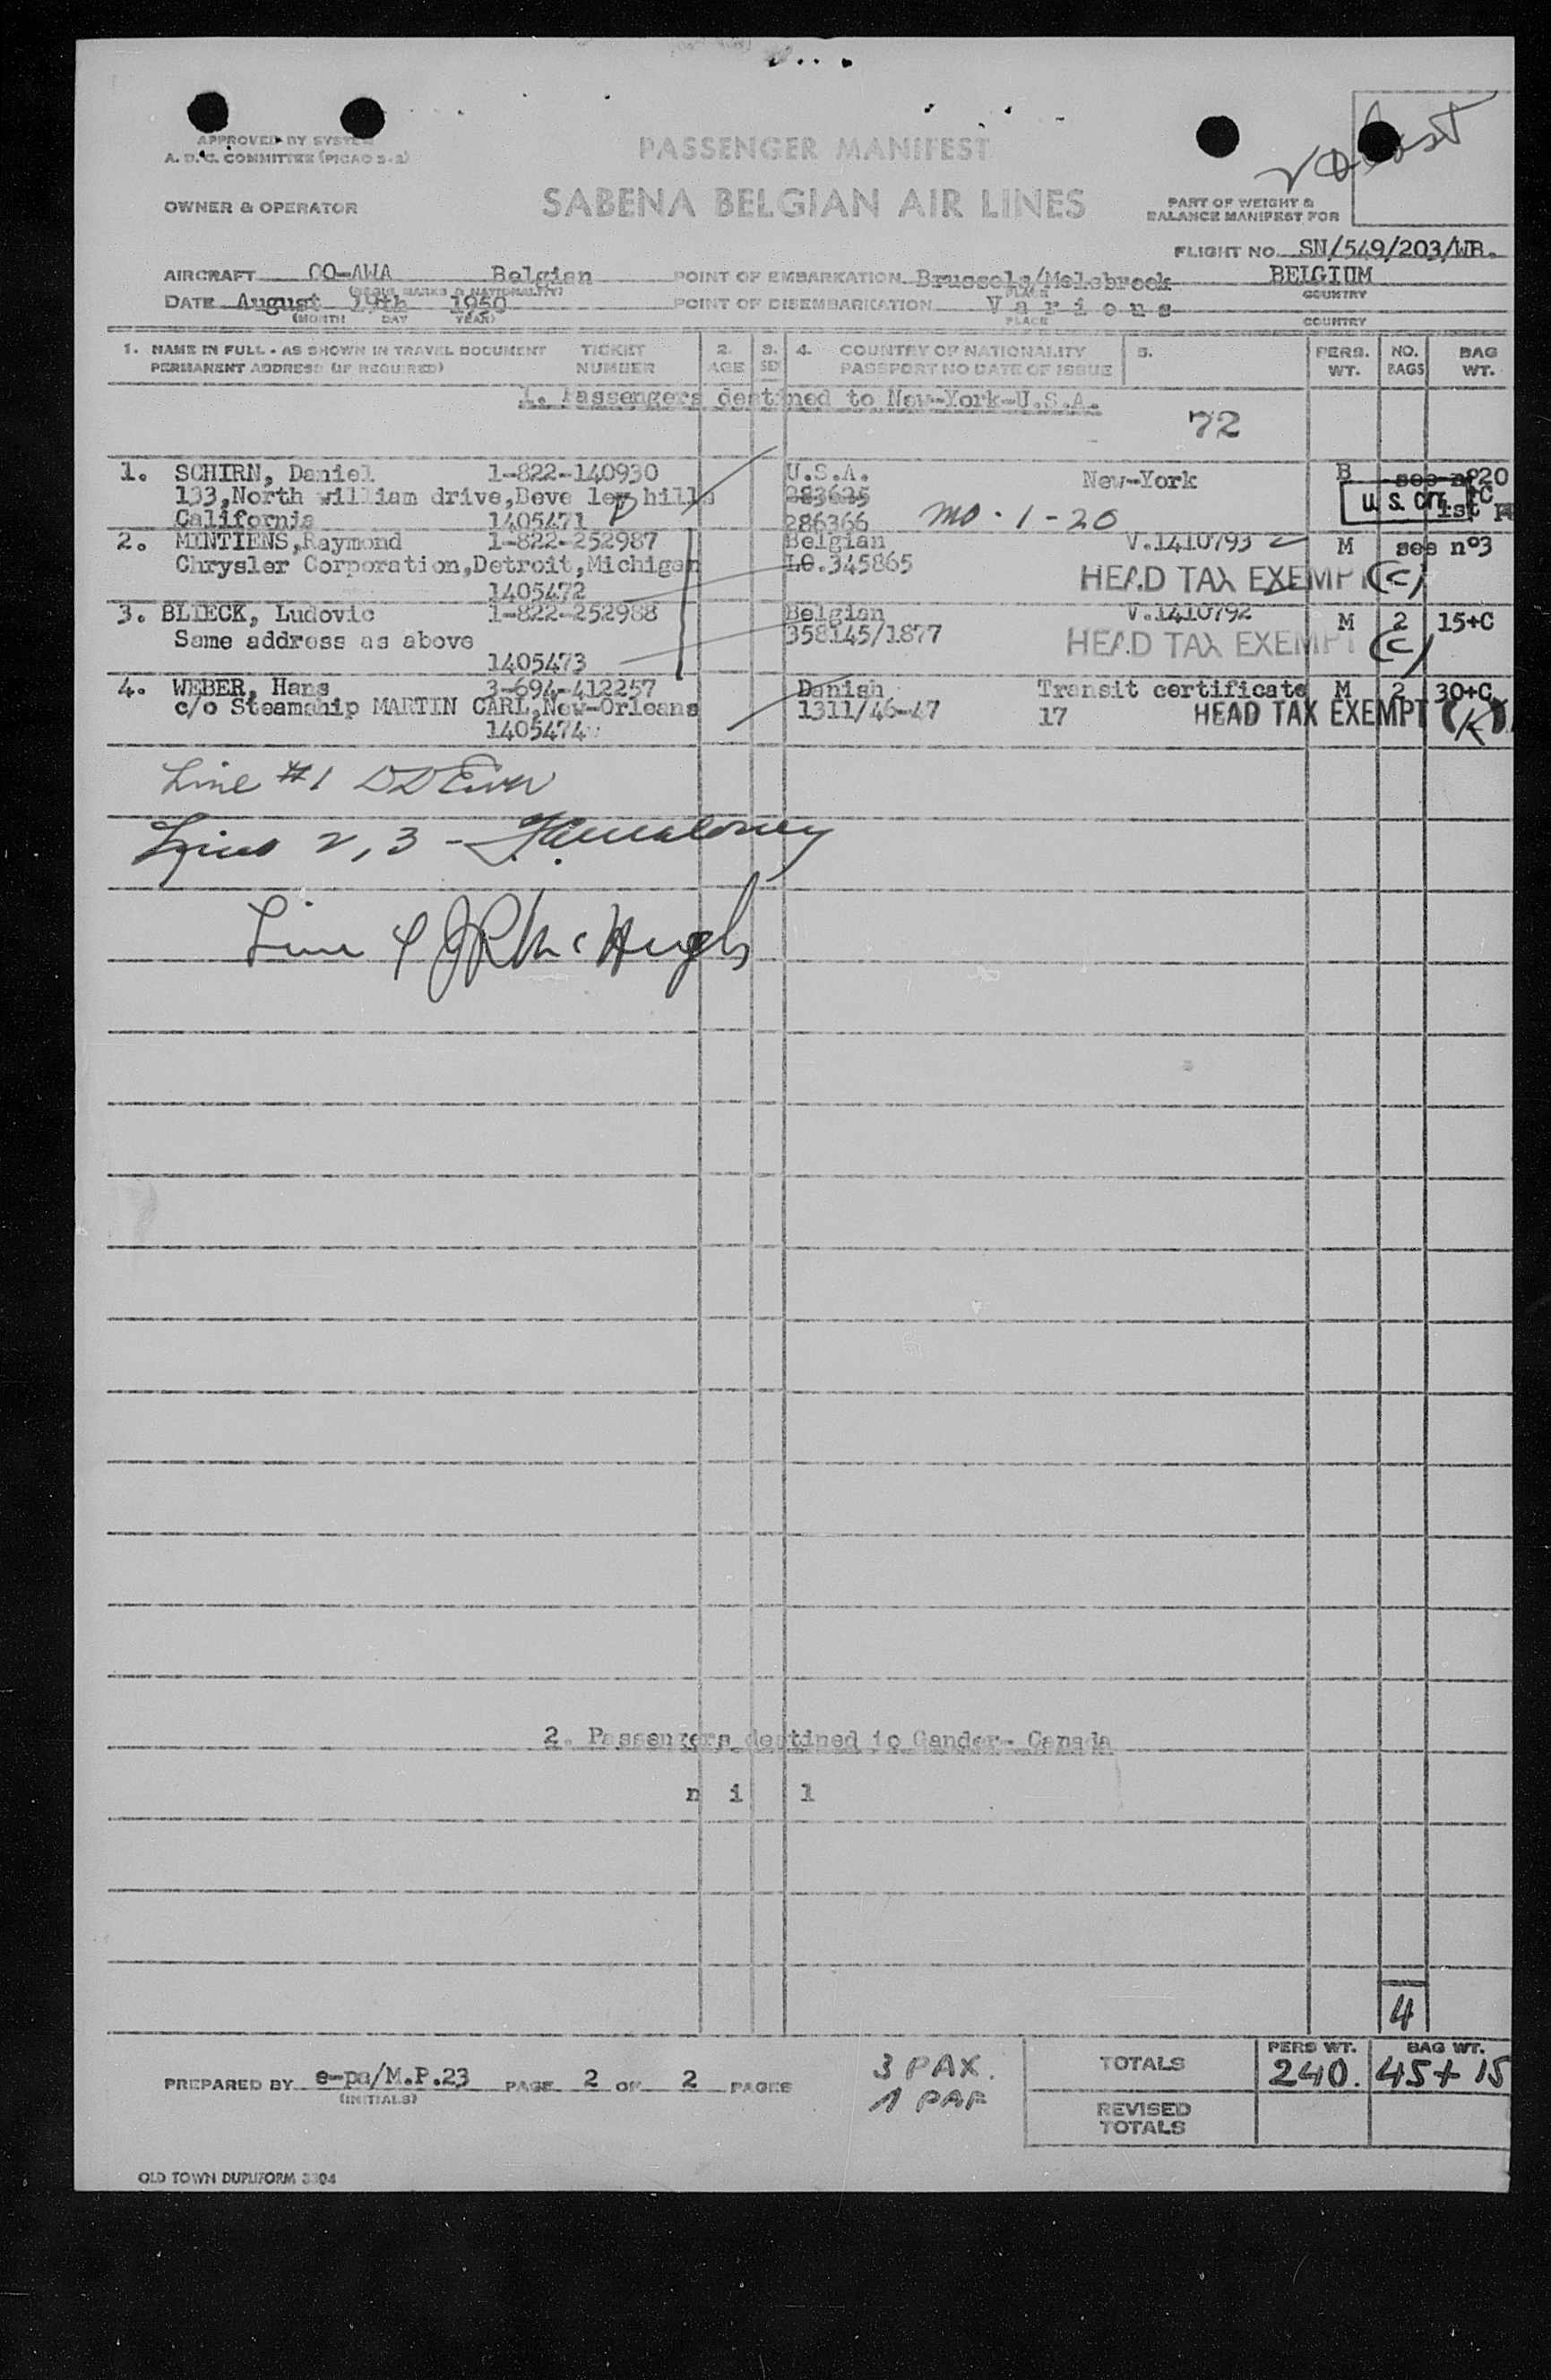 APPROVED BY SYSTEM
A. D. C. COMMITTEE (PICAO S-2)
PASSENGER MANIFEST
OWNER & OPERATOR
SABENA BELGIAN AIR LINES
PART OF WEIGHT &
BALANCE MANIFEST FOR
FLIGHT NO. SN/549/203/WB.
AIRCRAFT OO-AWA Belgian POINT OF EMBARKATION Brussels/Melsbroek BELGIUM
(REGIS. MARKS & NATIONALITY) PLACE COUNTRY
DATE August 19th 1950 POINT OF DISEMBARKATION Various
(MONTH DAY YEAR) PLACE COUNTRY
1. NAME IN FULL - AS SHOWN IN TRAVEL DOCUMENT TICKET 2. 3. 4. COUNTRY OF NATIONALITY 5. PERS. NO. BAG
PERMANENT ADDRESS (IF REQUIRED) NUMBER AGE SEX PASSPORT NO DATE OF ISSUE WT. BAGS WT.
1. Passengers destined to New-York-U.S.A.
72
1. SCHIRN, Daniel 1-822-140930 U.S.A. New-York B see n°20
133,North william drive,Beve ley hills 283625 U. S. CIT. +C
California 1405471 286366 mo. 1-20 1st
2. MINTIENS,Raymond 1-822-252987 Belgian V.1410793 M see n°3
Chrysler Corporation,Detroit,Michigan LO.345865 HEAD TAX EXEMPT (c)
1405472
3. BLIECK, Ludovic 1-822-252988 Belgian V.1410792 M 2 15+C
Same address as above 358145/1877 HEAD TAX EXEMPT (c)
1405473
4. WEBER, Hans 3-694-412257 Danish Transit certificate M 2 30+C
c/o Steamship MARTIN CARL,New-Orleans 1311/46-47 17 HEAD TAX EXEMPT (K)
1405474
Line #1
Lines 2, 3 - Maloney
Line 4 JR McHugh
2. Passengers destined to Gander- Canada
n i l
4
PREPARED BY e-pa/M.P.23 PAGE 2 OF 2 PAGES
(INITIALS)
3 PAX.
1 PAR
TOTALS PERS WT. 240. BAG WT. 45+15
REVISED
TOTALS
OLD TOWN DUPLIFORM 3304